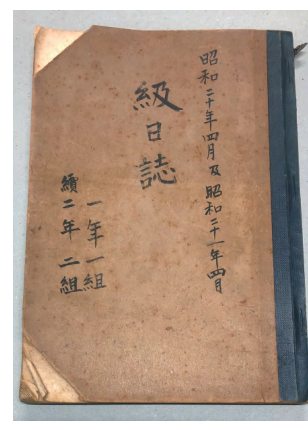 昭和二十年四月及昭和二十一年四月
級日誌
一年一組
續二年二組